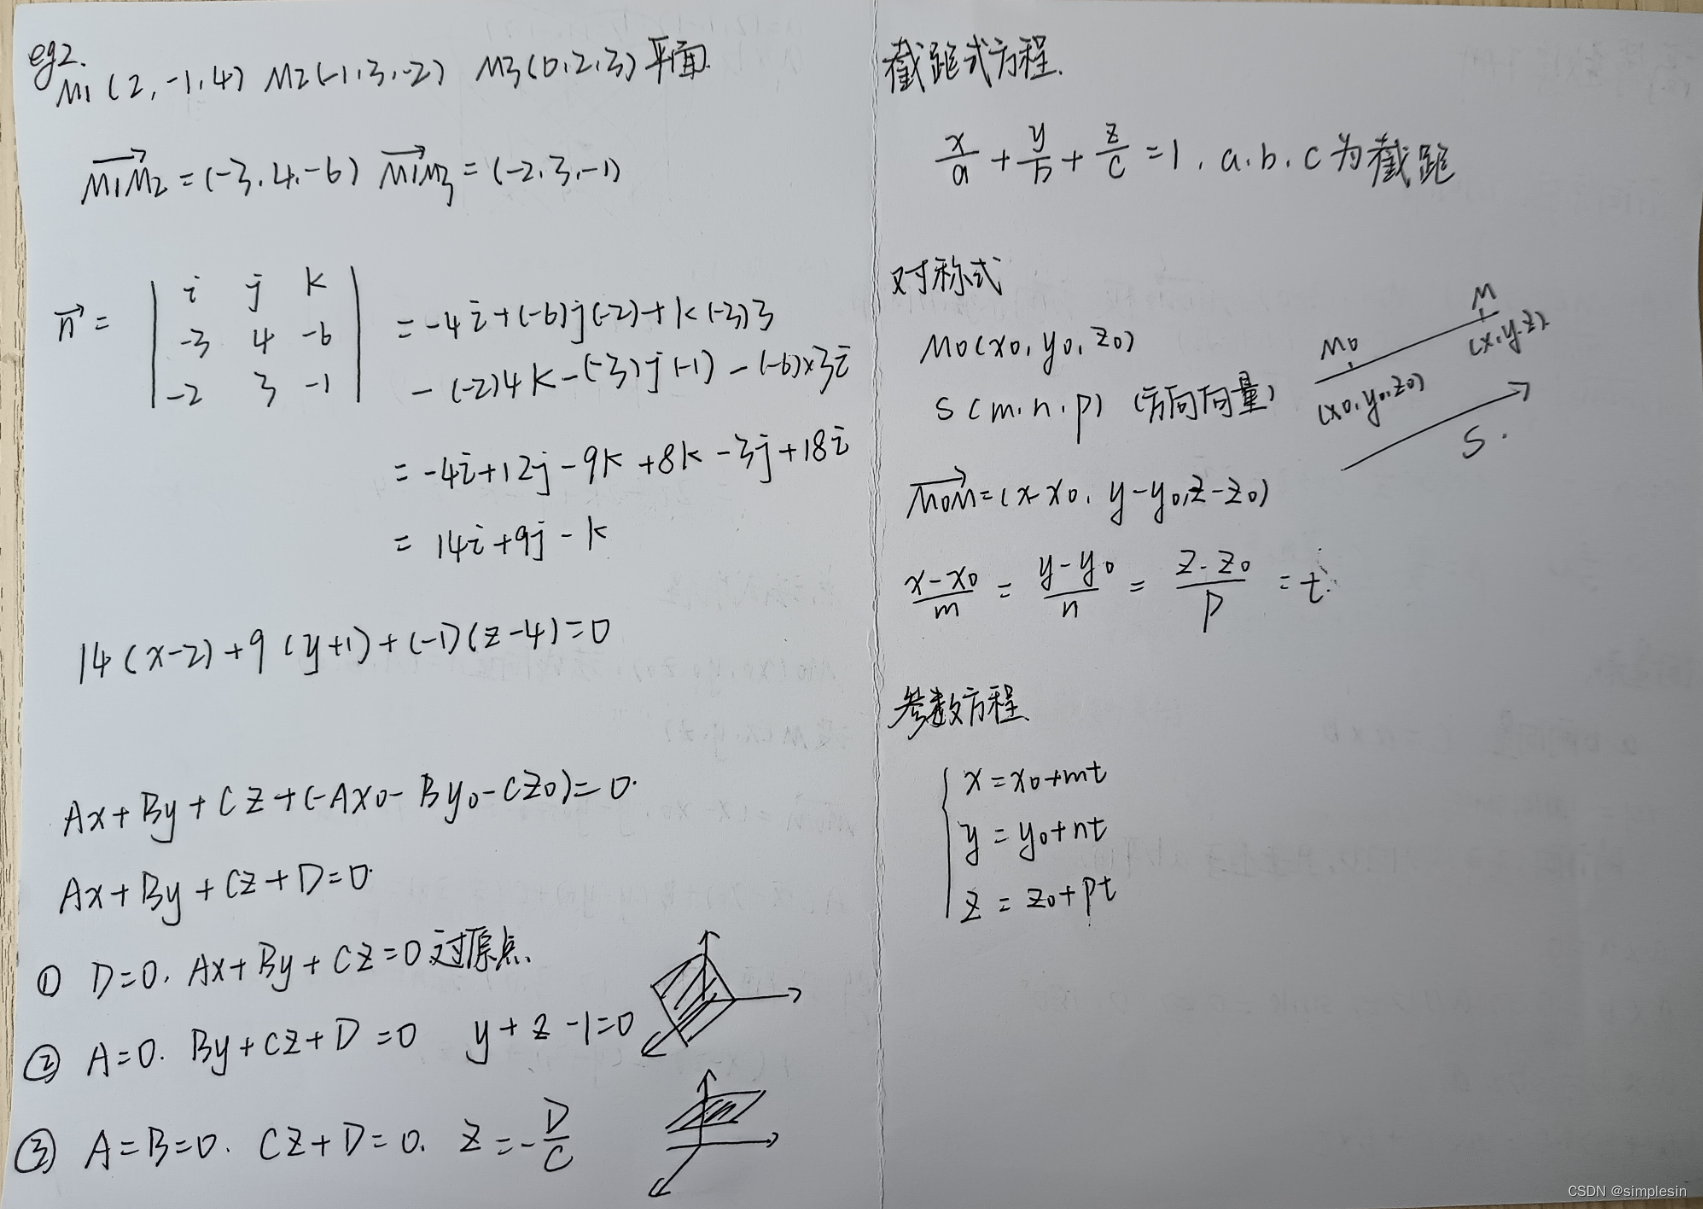 eg2.
M1(2,-1,4) M2(-1,3,-2) M3(0,2,3)平面.
M1M2=(-3,4,-6) M1M3=(-2,3,-1)
n = | i j k |
| -3 4 -6 |
| -2 3 -1 |
= -4i+(-6)j(-2)+k(-3)3
- (-2)4k-(-3)j(-1)-(-6)×3i
= -4i+12j-9k+8k-3j+18i
= 14i+9j-k
14(x-2)+9(y+1)+(-1)(z-4)=0
Ax+By+Cz+(-Ax0-By0-Cz0)=0.
Ax+By+Cz+D=0.
① D=0. Ax+By+Cz=0 过原点.
② A=0. By+Cz+D=0 y+z-1=0
③ A=B=0. Cz+D=0. z=-D/C
截距式方程.
x/a+y/b+z/c=1, a.b.c为截距
对称式
M0(x0,y0,z0)
S(m.n.p) (方向向量)
M0
M
(x0,y0,z0)
(x,y,z).
S.
M0M=(x-x0, y-y0,z-z0)
x-x0/m = y-y0/n = z-z0/p = t
参数方程.
x=x0+mt
y=y0+nt
z=z0+pt
CSDN @simplesin